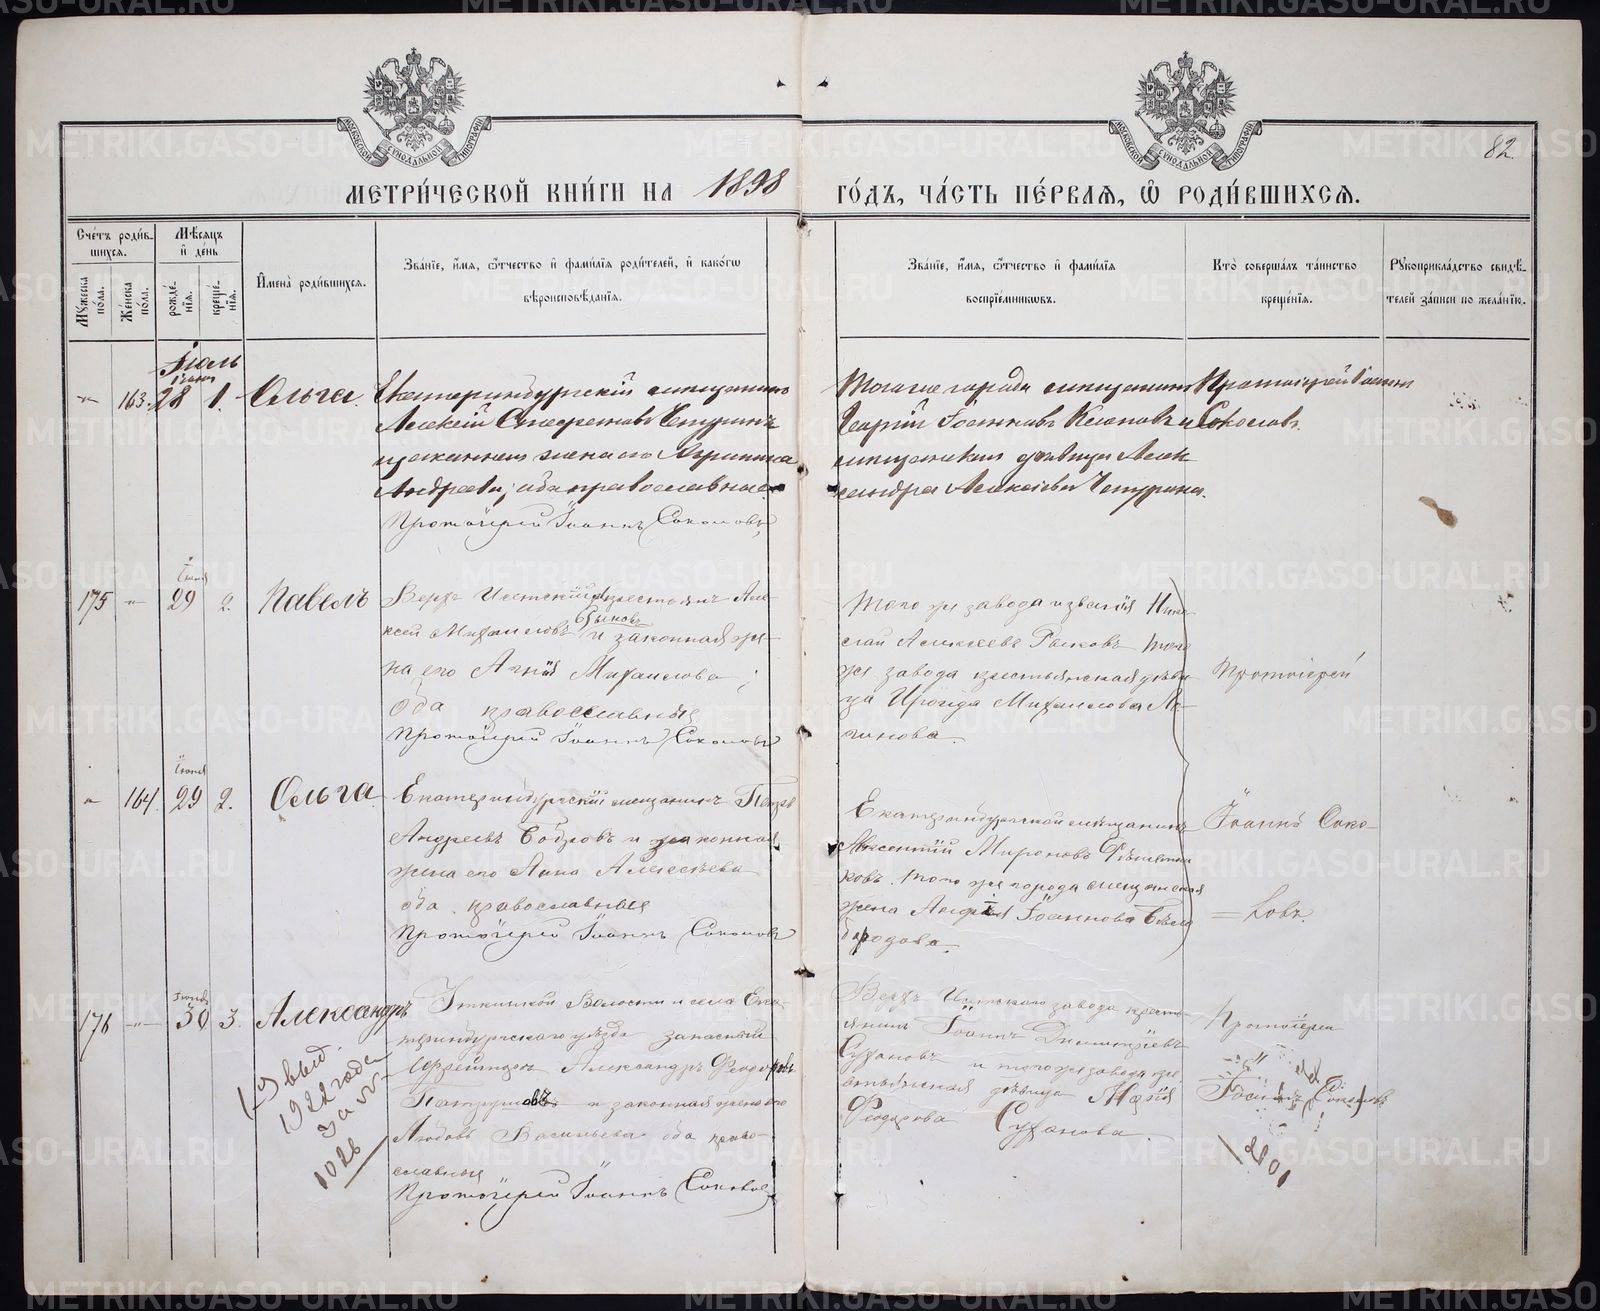 МЕТРИ́ЧЕСКОЙ КНИ́ГИ НА 1898
ГО́ДЪ, ЧА́СТЬ ПЕ́РВАЯ, Ѿ РОДИ́ВШИХСЯ.
82
Сче́тъ роди́в-
шихся.
Мѣ́сяцъ
и де́нь
Му́жеска
по́ла.
Же́нска
по́ла.
рожде́-
нія.
креще́-
нія.
Имена̀ роди́вшихся.
Зва́ніе, и́мя, о́тчество и фами́лія роди́телей, и како́гѡ
вѣроисповѣ́данія.
Зва́ніе, и́мя, о́тчество и фами́лія
воспрїе́мниковъ.
Кто̀ соверша́лъ та́инство
креще́нія.
Рукоприкла́дство свидѣ́-
телей за́писи по жела́нію.
Іюль
163. 28 1. Ольга.
Екатеринбургскій мещанинъ
Алексій Стефановъ Чепуринъ
и законная жена его Агрипина
Андреева, оба православные.
Протоіерей Іоаннъ Соколовъ
Того же города мещанинъ
Георгій Іоанновъ и
мещанская дѣвица Алек
сандра Алексіева Чепурина.
Протоіерей Іоаннъ
Соколовъ.
Іюня
175 29 2. Павелъ
Верхъ Исетскій крестьянинъ Але
ксей Михаиловъ Рыковъ и законная же-
на его Агнія Михаилова;
оба православныя
Протоіерей Іоаннъ Соколовъ
Того же завода Нико
лай Алексеевъ Рыковъ того
же завода крестьянская дѣви
ца Ироида Михаилова Ло-
гинова.
Протоіерей
Іюня
164. 29 2. Ольга
Екатеринбургскій мещанинъ Петръ
Андреевъ Бобровъ и законная
жена его Анна Алексѣева
оба православныя
Протоіерей Іоаннъ Соколовъ
Екатеринбургской мещанинъ
Авксентій Мироновъ Рѣшетни
ковъ. Того же города мещанская
жена Іоаннова Бѣло
бородова.
Іоаннъ Соко-
=ловъ.
Іюнь
176 30 3. Александръ
Уткинской Волости и села Ека-
теринбургского уѣзда запасный
Ефрейторъ Александръ Феодоровъ
и законная жена его
Любовь Васильева оба право-
славныя
Протоіерей Іоаннъ Соколовъ
Верхъ Исетского завода кресть
янинъ Іоаннъ Димитріевъ
Сухановъ и того же завода кре
стьянская дѣвица Марія
Феодорова Суханова.
Протоіерей
Іоаннъ Соколовъ
выд.
1922 года
за №
1026